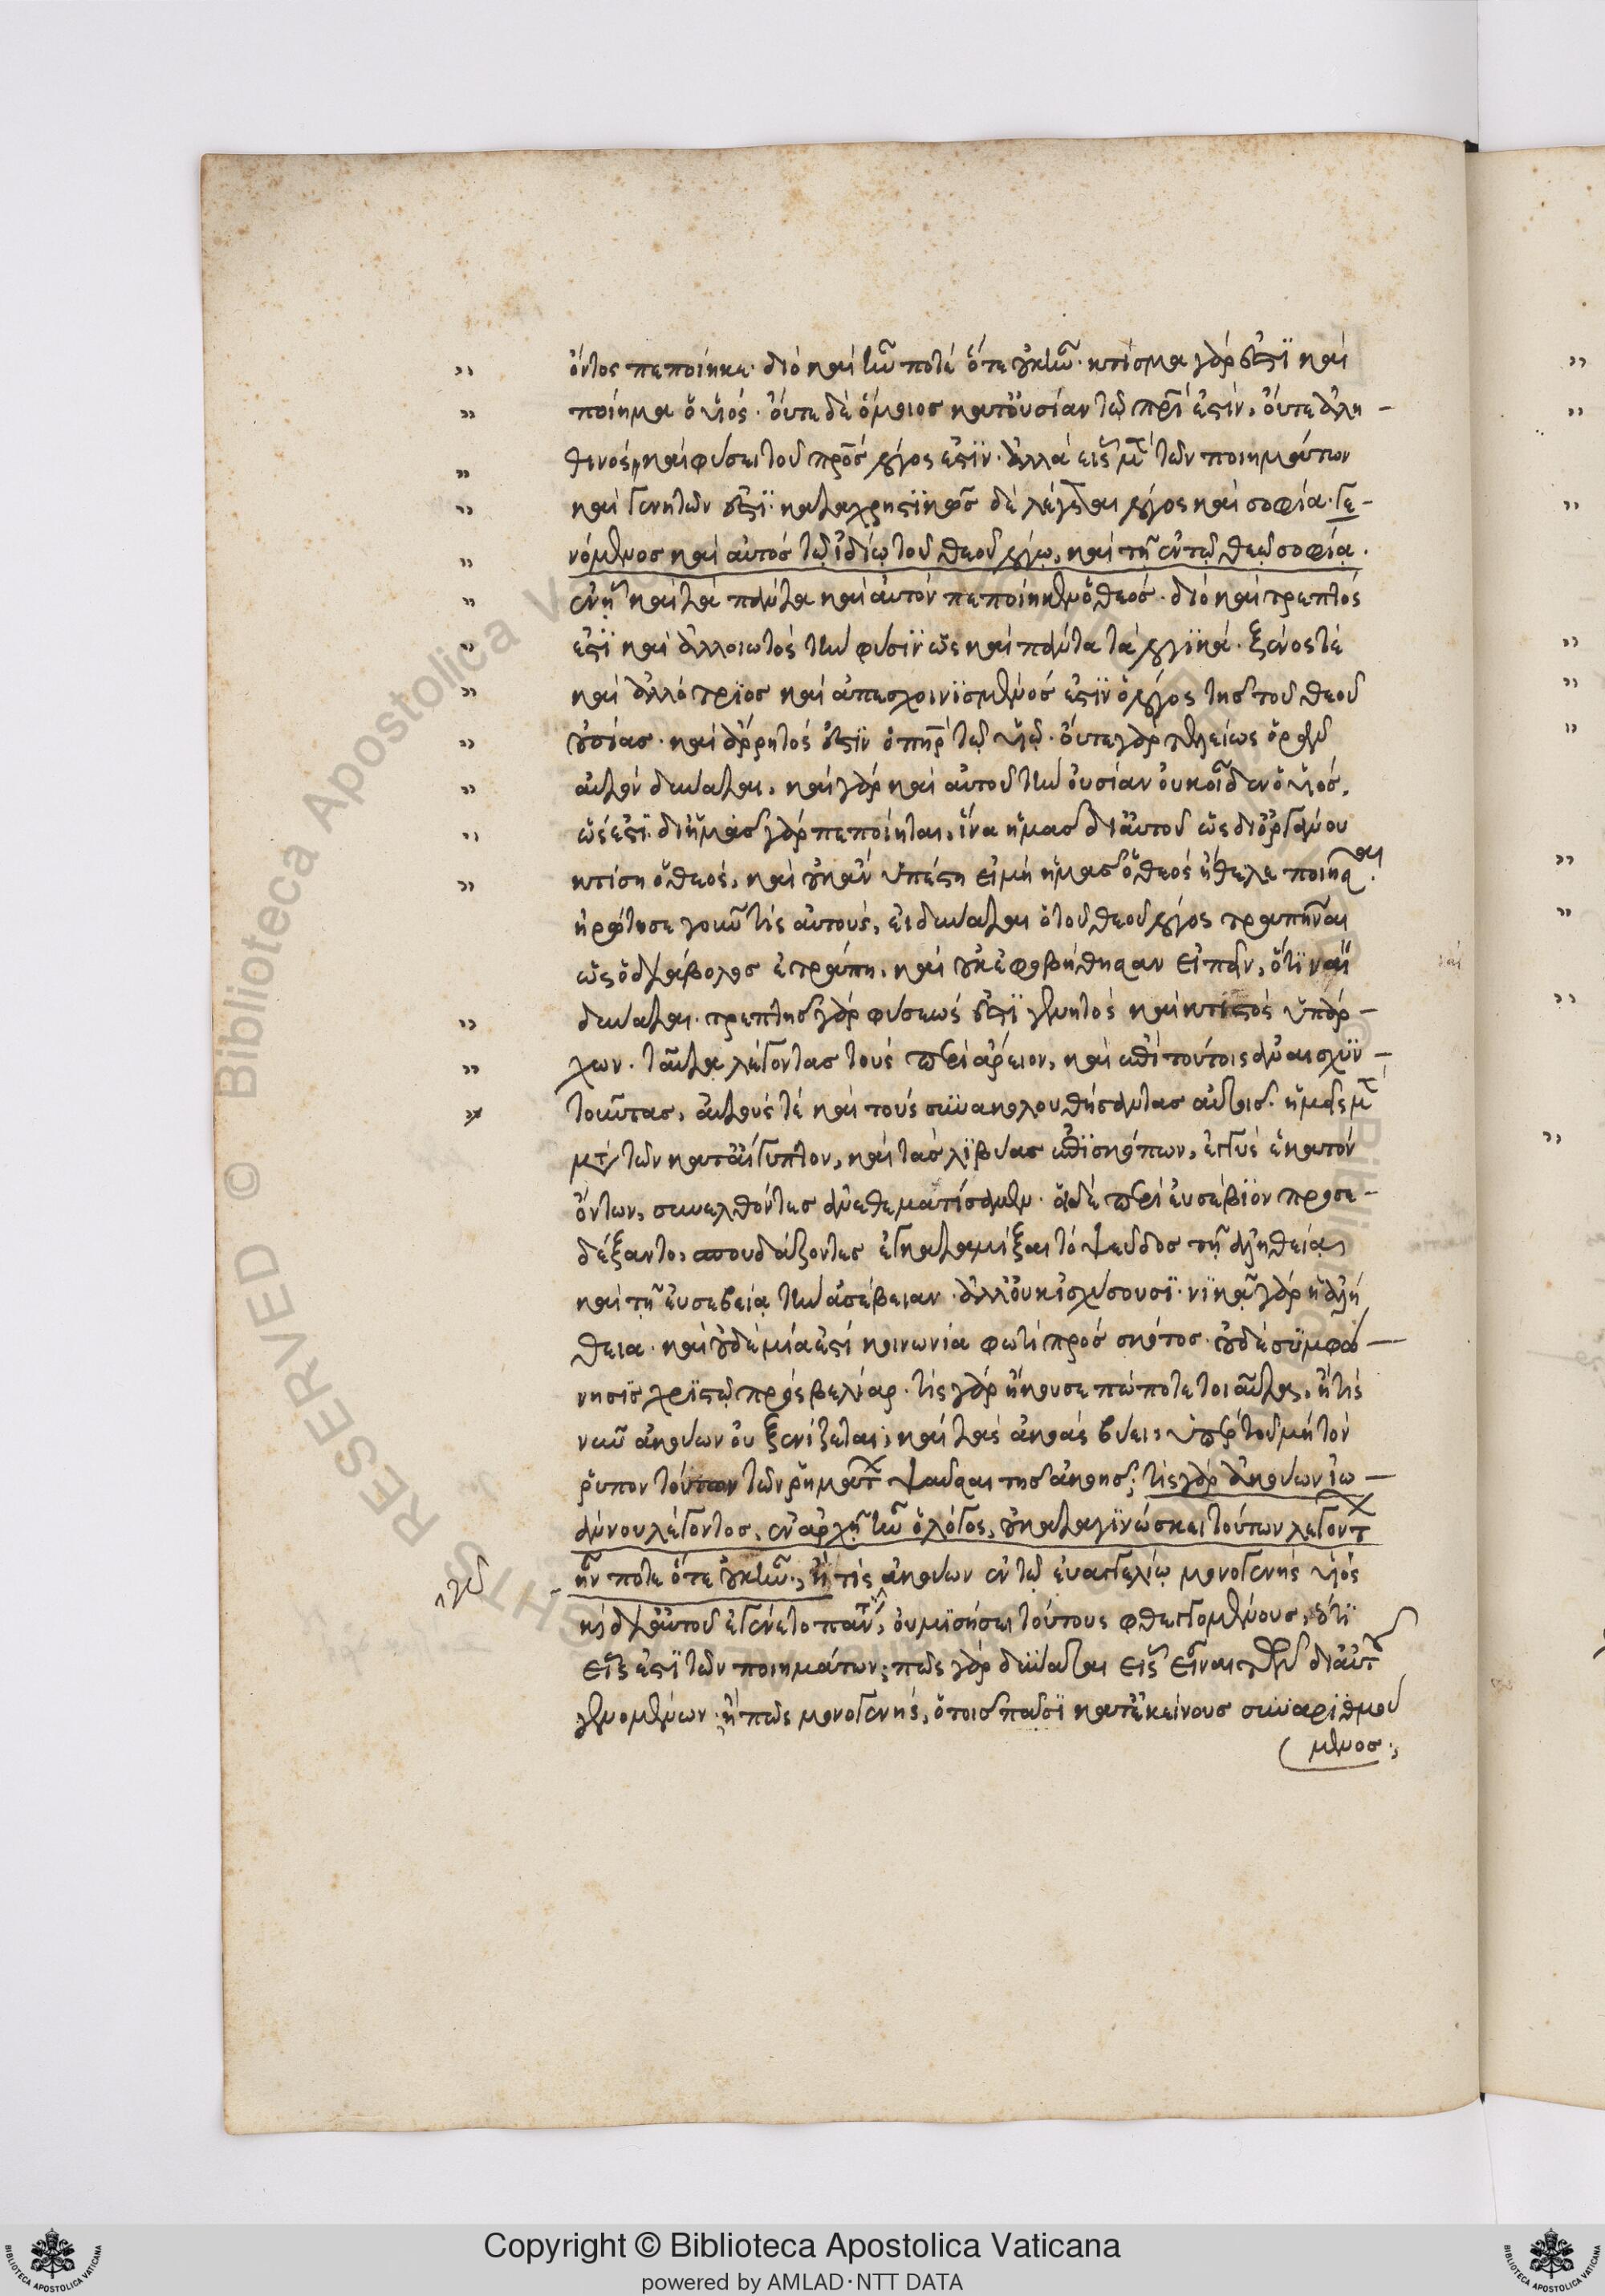 ὄντος πεποίηκε· διὸ καὶ ἦν ποτὲ ὅτε οὐκ ἦν· κτίσμα γάρ ἐστι καὶ
ποίημα ὁ υἱός· οὔτε δὲ ὅμοιος κατ' οὐσίαν τῷ πρί ἐστίν, οὔτε ἀλη-
θινός, καὶ φύσει τοῦ πρός λόγος ἐστίν· ἀλλὰ εἷς μ τῶν ποιημάτων
καὶ γενητῶν ἐστί· καταχρηστικῶς δὲ λέγεται λόγος καὶ σοφία· γε-
νόμενος καὶ αὐτὸς τῷ ἰδίῳ τοῦ θεοῦ λόγῳ, καὶ τῇ ἐν τῷ θεῷ σοφίᾳ.
ἐν ᾗ καὶ τὰ πάντα καὶ αὐτὸν πεποίηκεν ὁ θεός· διὸ καὶ τρεπτός
ἐστι καὶ ἀλλοιωτὸς τὴν φύσιν ὡς καὶ πάντα τὰ λογικά· ξένος τέ
καὶ ἀλλότριος καὶ ἀπεσχοινισμένος ἐστὶν ὁ λόγος τῆς τοῦ θεοῦ
οὐσίας· καὶ ἄρρητός ἐστιν ὁ πηρ τῷ υἱῷ· οὔτε γὰρ τελείως ὁρᾶν
αὐτὸν δύναται, καὶ γὰρ καὶ αὐτοῦ τὴν οὐσίαν οὐκ οἶδεν ὁ υἱός,
ὡς ἐστί· δι' ἡμᾶς γὰρ πεποίηται, ἵνα ἡμᾶς δι' αὐτοῦ ὡς δι' ὀργάνου
κτίσῃ ὁ θεός, καὶ οὐκ ἂν ὑπέστη εἰ μὴ ἡμᾶς ὁ θεὸς ἤθελε ποιῆσαι.
ἠρώτησε γοῦν τὶς αὐτούς, εἰ δύναται ὁ τοῦ θεοῦ λόγος τραπῆναι
ὡς ὁ διάβολος ἐτράπη, καὶ οὐκ ἐφοβήθησαν εἰπεῖν, ὅτι ναὶ
δύναται· τρεπτῆς γὰρ φύσεώς ἐστι γενητὸς καὶ κτιστὸς ὑπάρ-
χων. ταῦτα λέγοντας τοὺς περὶ ἄρειον, καὶ ἐπὶ τούτοις ἀναισχυν-
τοῦντας, αὐτούς τέ καὶ τοὺς συνακολουθήσαντας αὐτοῖς· ἡμεῖς μ
μετὰ τῶν κατ' αἴγυπτον, καὶ τὰς λιβύας ἐπισκόπων, ἐγγὺς ἑκατόν
ὄντων, συνελθόντες ἀνεθεματίσαμεν· οἱ δὲ περὶ εὐσέβιον προσε-
δέξαντο, σπουδάζοντες ἐγκαταμίξαι τὸ ψεῦδος τῇ ἀληθείᾳ,
καὶ τῇ εὐσεβείᾳ τὴν ἀσέβειαν· ἀλλ' οὐκ ἰσχύσουσι· νικᾷ γὰρ ἡ ἀλή
θεια· καὶ οὐδεμία ἐστὶ κοινωνία φωτὶ πρὸς σκότος· οὐδὲ συμφώ-
νησις χριστῷ πρὸς βελίαρ· τίς γὰρ ἤκουσε πώποτε τοιαῦτα, ἢ τίς
νῦν ἀκούων οὐ ξενίζεται, καὶ τὰς ἀκοὰς βύει, ὑπὲρ τοῦ μὴ τὸν
ῥύπον τούτων τῶν ῥημάτ ψαῦσαι τῆς ἀκοῆς; τίς γὰρ ἀκούων ἰω-
άννου λέγοντος, ἐν ἀρχῇ ἦν ὁ λόγος, οὐ καταγινώσκει τούτων λεγόντ
ἦν ποτε ὅτε οὐκ ἦν, ἢ τίς ἀκούων ἐν τῷ εὐαγγελίῳ μονογενὴς υἱός
κὶ δι' αὐτοῦ ἐγένετο πάντα, οὐ μισήσει τούτους φθεγγομένους, ὅτι
εἷς ἐστὶ τῶν ποιημάτων; πῶς γὰρ δύναται εἷς εἶναι τῶν δι' αὐτ
γενομένων; ἢ πῶς μονογενής, ὁ τοῖς πᾶσι κατ' ἐκείνους συναριθμού
μενος·,
Copyright © Biblioteca Apostolica Vaticana
powered by AMLAD·NTT DATA